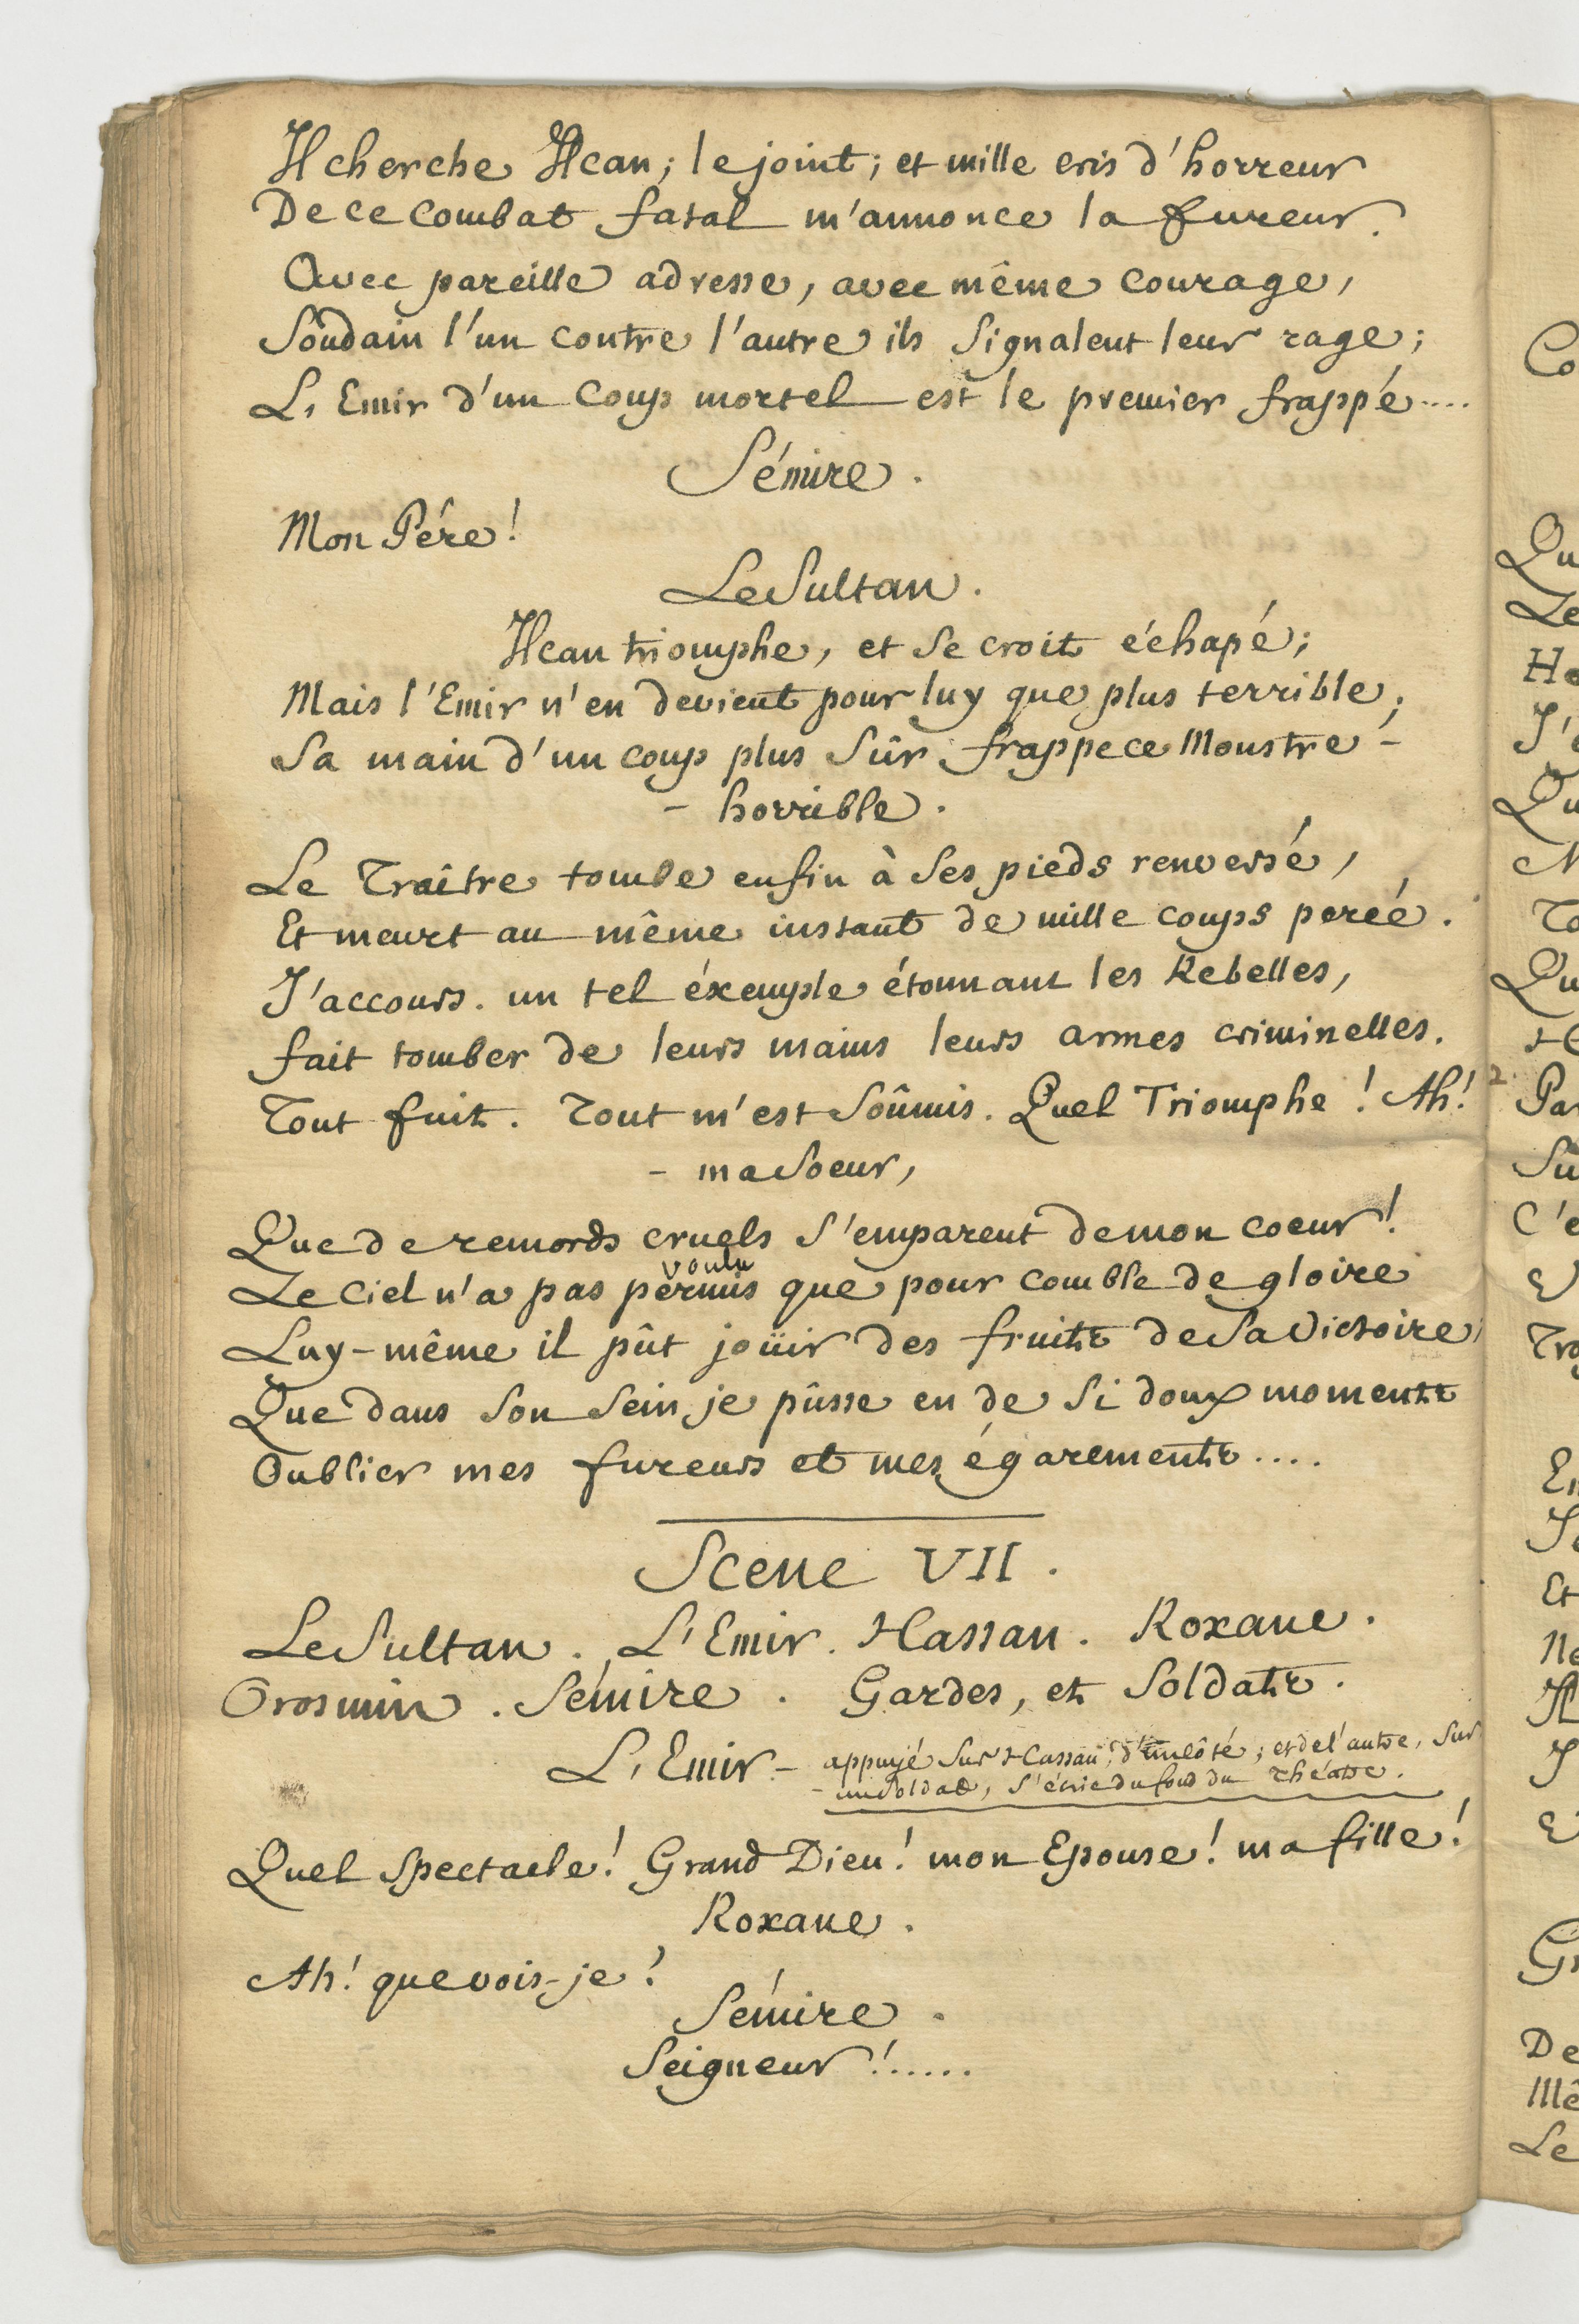 Il cherche Ilcan; le joint; et mille cris d'horreur
De ce combat fatal m'annonce la fureur.
Avec pareille adresse, avec même courage,
Soudain l'un contre l'autre ils signalent leur rage;
L'Emir d'un coup mortel est le premier frappé....
Sémire.
Mon Pére!
Le Sultan.
Ilcan triomphe, et se croit échapé;
Mais l'Emir n'en devient pour luy que plus terrible;
Sa main d'un coup plus sûr frappe ce Monstre -
- horrible.
Le Traître tombe enfin à ses pieds renversé,
Et meurt au même instant de mille coups percé.
J'accours. un tel éxemple étonnant les Rebelles,
fait tomber de leurs mains leurs armes criminelles.
Tout fuit. Tout m'est soûmis. Quel Triomphe! Ah!
- ma Soeur,
Que de remords cruels s'emparent de mon coeur!
voulu
Le Ciel n'a pas permis que pour comble de gloire
Luy-même il pût joüir des fruits de sa victoire;
Que dans son sein je pûsse en de si doux moments
Oublier mes fureurs et mes égarements....
Scene VII.
Le Sultan. L'Emir. Hassan. Roxane.
Orosmin. Sémire. Gardes, et Soldats.
L'Emir - appuyé sur Hassan, d'un côté; et de l'autre, sur
- un Soldat, s'écrie du fond du théatre.
Quel spectacle! Grand Dieu! mon Epouse! ma fille!
Roxane.
Ah! que vois-je!
Sémire.
Seigneur!......
Co
Qu
Le
J'
Qu
To
Qu
2.
Par
C'e
Et
De
Le